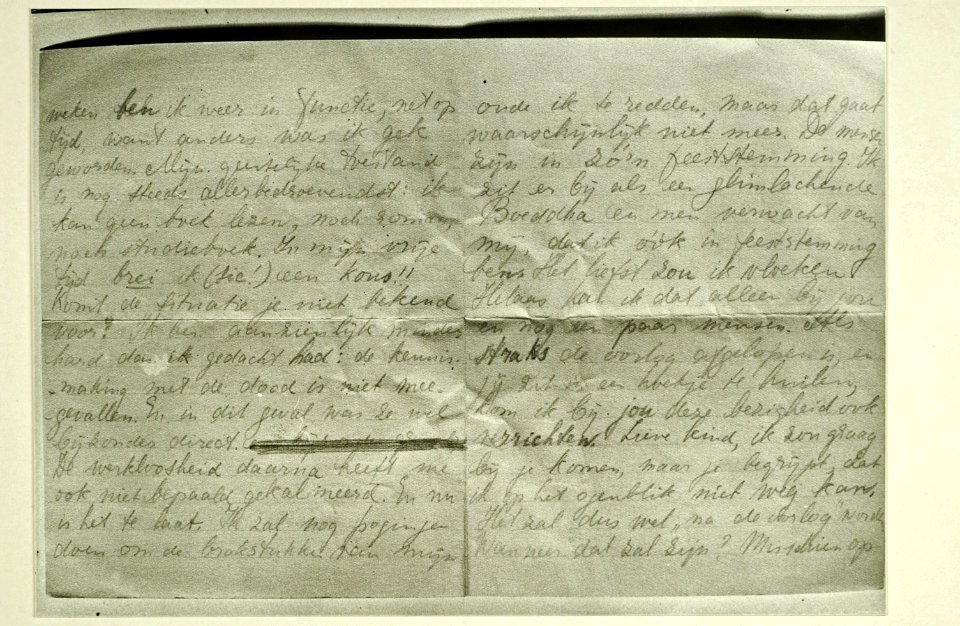 weken ben ik weer in functie, net op
tijd, want anders was ik gek
geworden. Mijn geestelijke toestand
is nog steeds allerbedroevendst: ik
kan geen boek lezen, noch roman,
noch studieboek. In mijn vrije
tijd brei ik (sic!) een kous!!
Komt de situatie je niet bekend
voor? Ik ben aanzienlijk minder
hard dan ik gedacht had: de kennis-
-making met de dood is niet mee-
-gevallen. En in dit geval was ze wel
bijzonder direct.
De werkloosheid daarna heeft me
ook niet bepaald gekalmeerd. En nu
is het te laat. Ik zal nog pogingen
doen om de brokstukken van mijn
oude ik te redden, maar dat gaat
waarschijnlijk niet meer. De mensen
zijn in zóó'n feeststemming. Ik
zit er bij als een glimlachende
Boeddha en men verwacht van
mij, dat ik óók in feeststemming
ben. Het liefst zou ik vloeken
Helaas kan ik dat alleen bij jou
en nog een paar mensen. Als
straks de oorlog afgelopen is, en
jij zit in een hoekje te huilen,
kom ik bij jou deze bezigheid ook
verrichten. Lieve kind, ik zou graag
bij je komen, maar je begrijpt, dat
ik op het ogenblik niet weg kan.
Het zal dus wel na de oorlog worden
Wanneer dat zal zijn? Misschien op